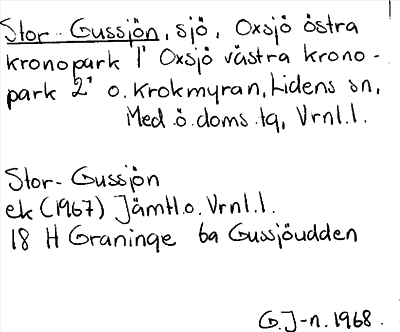 Stor-Gussjön, sjö, Oxsjö östra
kronopark 1' Oxsjö västra krono-
park 2' o. Krokmyran, Lidens sn,
Med. ö. doms. tg, Vrnl. l.
Stor-Gussjön
ek (1967) Jämtl. o. Vrnl. l.
18 H Graninge 6a Gussjöudden
G. J-n. 1968.